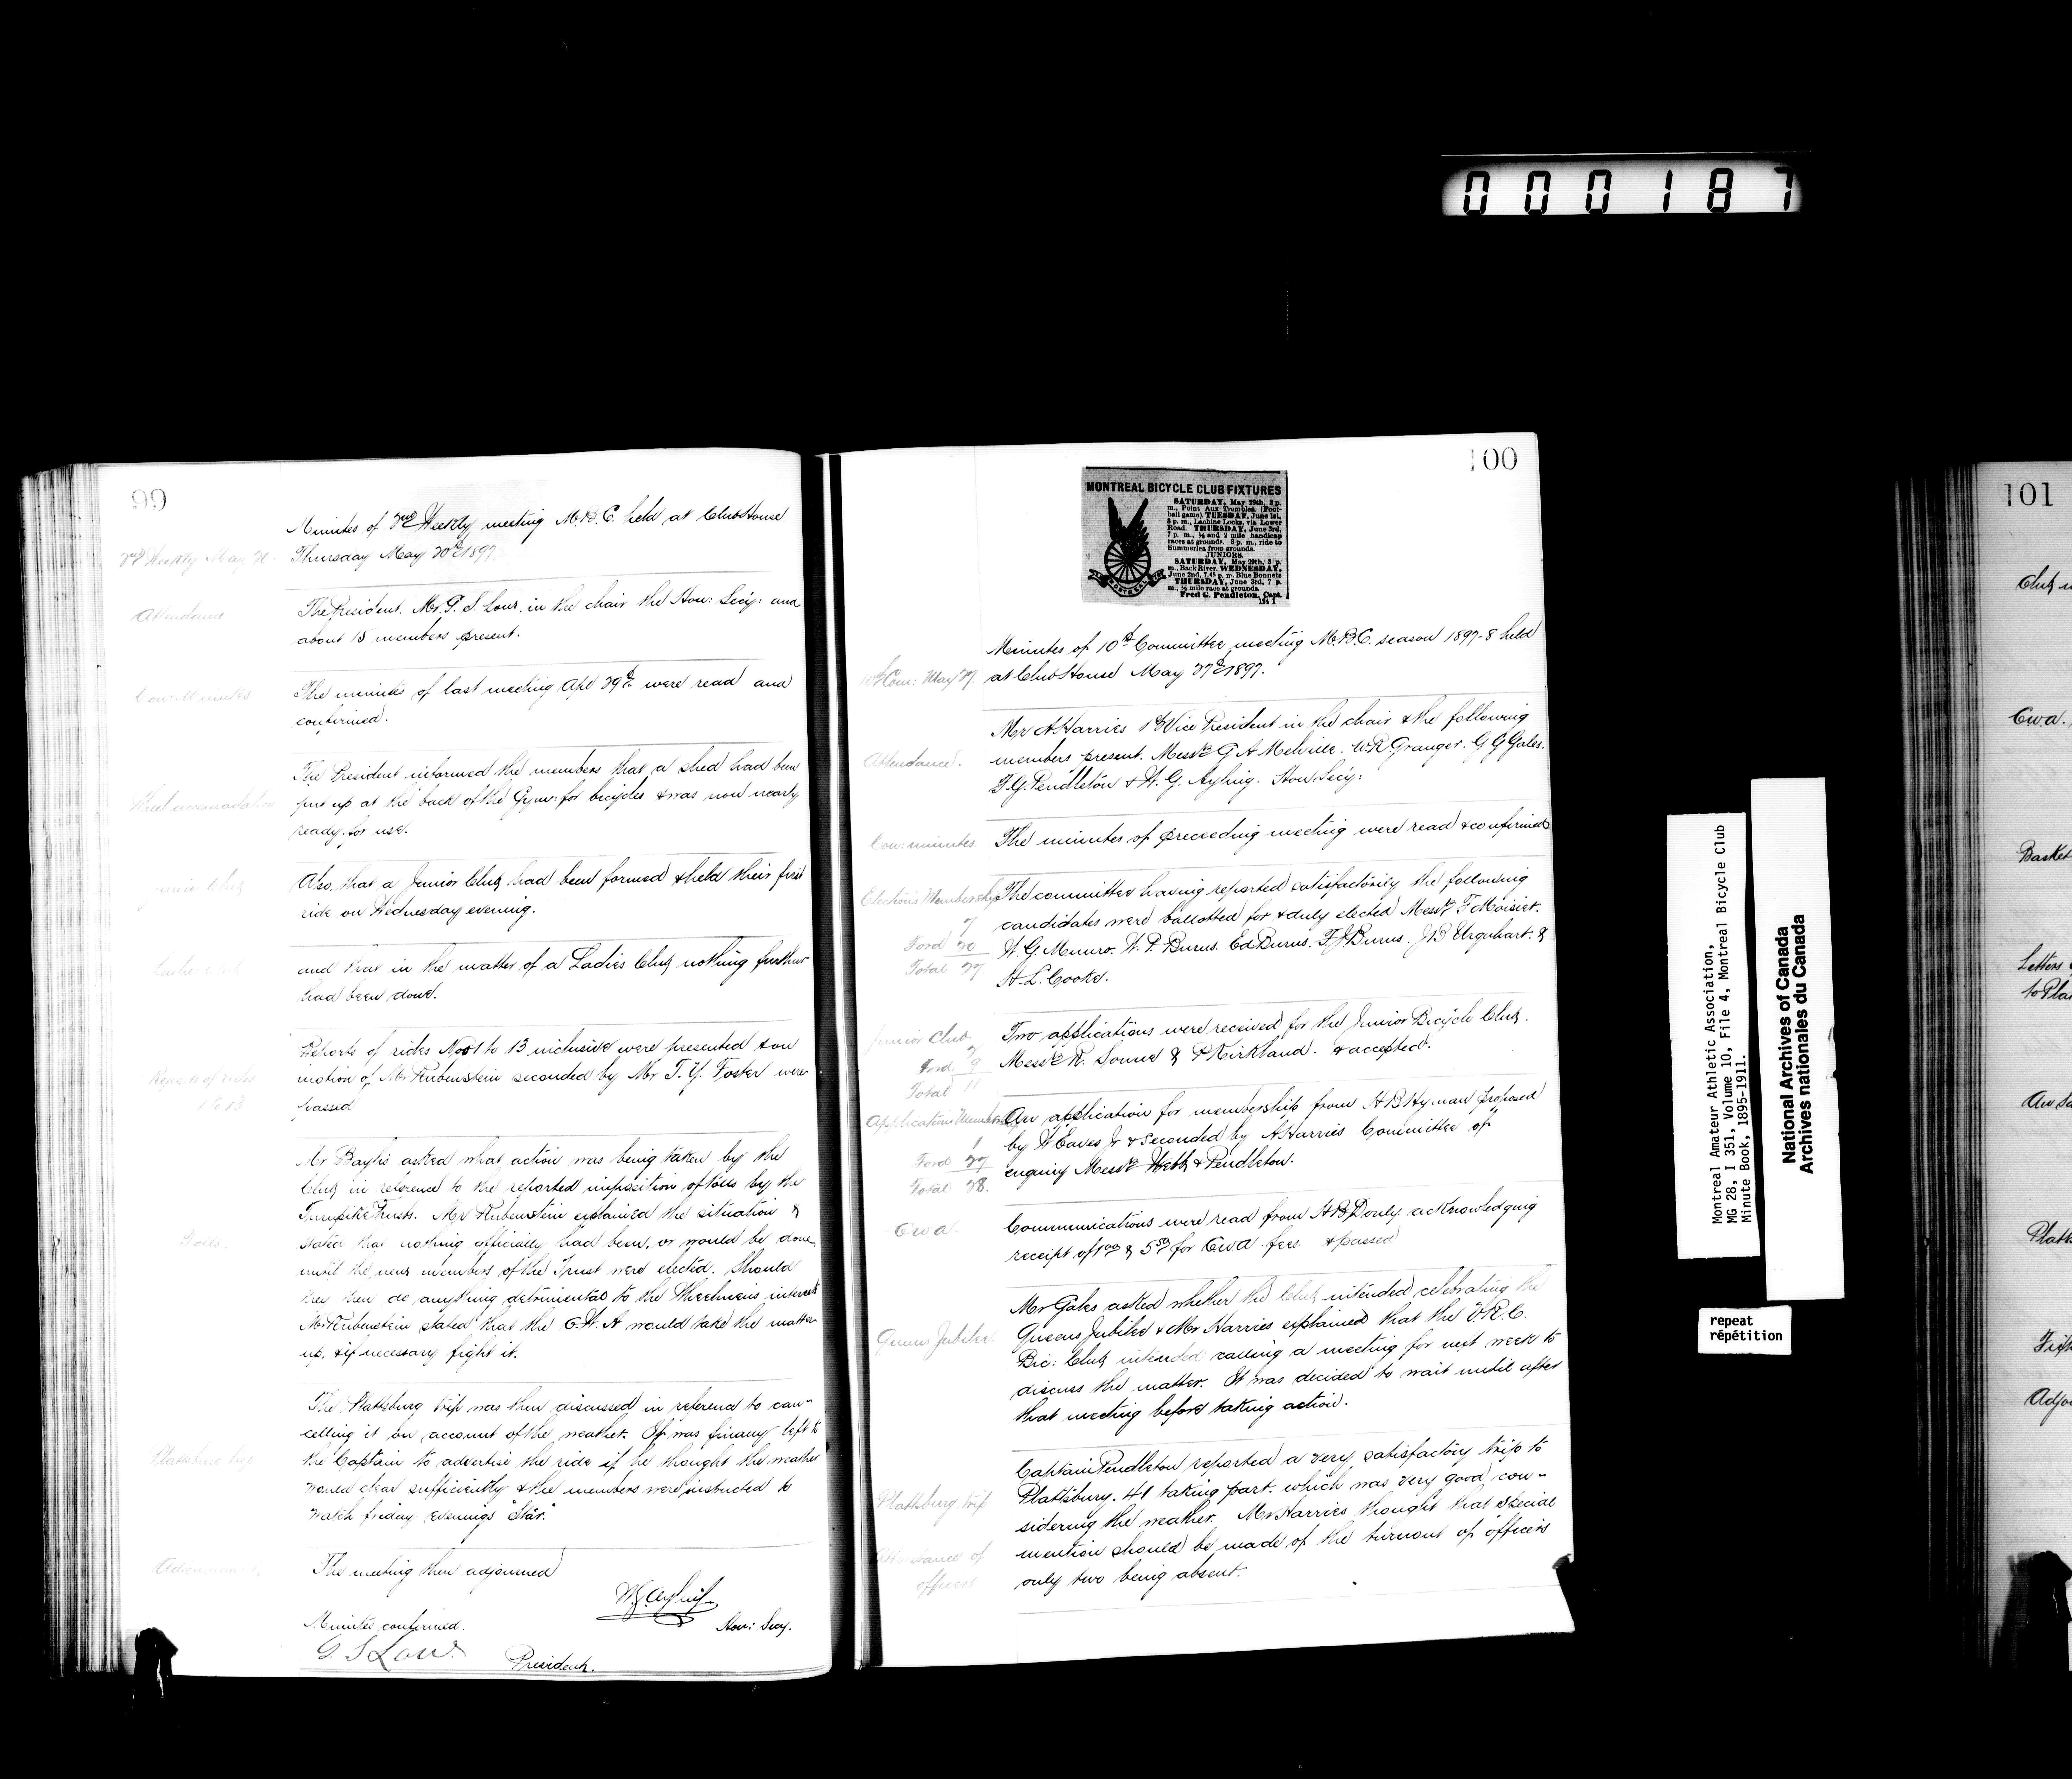 000187
99
Minutes of 2nd Weekly meeting M.B.C. held at Club House
2nd Weekly May 20. Thursday May 20th 1897.
Attendance The President. Mr. G. S. Low. in the chair the Hon: Secy: and
about 15 members present.
Con: Minutes The minutes of last meeting Apl 29th were read and
confirmed.
The President informed the members that a shed had been
Wheel accomadation put up at the back of the Gym: for bicycles & was now nearly
ready for use.
Junior Club Also that a Junior Club had been formed & held their first
ride on Wednesday evening.
Ladies Club and that in the matter of a Ladies Club nothing further
had been done.
Reports of rides Nos 1 to 13 inclusive were presented & on
Reports of rides motion of Mr Rubenstein seconded by Mr T. Y. Foster were
1 to 13 passed
Mr Baylis asked what action was being taken by the
Club in reference to the reported imposition of tolls by the
Turnpike Trusts. Mr Rubenstein explained the situation &
Tolls stated that nothing officially had been, or would be done
until the new members of the Trust were elected. Should
they then do anything detrimental to the Wheelmens interests
Mr Rubenstein stated that the C.W.A would take the matter
up, & if necessary fight it.
The Plattsburg trip was then discussed in reference to can-
celling it on account of the weather. It was finally left to
Plattsburg trip the Captain to advertise the ride if he thought the weather
would clear sufficiently & the members were instructed to
watch friday evenings "Star."
Adjournment The meeting then adjourned
Minutes confirmed. Hon: Secy.
G. S Low. President.
100
MONTREAL BICYCLE CLUB FIXTURES
SATURDAY, May 29th, 3 p.
m., Point Aux Trembles. (Foot-
ball game). TUESDAY, June 1st,
8 p. m., Lachine Locks, via Lower
Road. THURSDAY, June 3rd,
7 p. m., ½ and 2 mile handicap
races at grounds. 8 p. m., ride to
Summerlea from grounds.
JUNIORS.
SATURDAY, May 29th, 3 p.
m., Back River. WEDNESDAY,
June 2nd, 7.45 p. m. Blue Bonnets
THURSDAY, June 3rd, 7 p.
m., ½ mile race at grounds.
Fred G. Pendleton, Capt.
124 1
MONTREAL
Minutes of 10th Committee meeting M.B.C. season 1897-8 held
10th Com: May 27. at Club House May 27th 1897.
Mr A Harries 1st Vice President in the chair & the following
Attendance. members present. Messrs G A Melville. W.R. Granger. G G Gales.
F.G. Pendleton & W. G. Ayling. Hon: Secy:
Con: minutes The minutes of preceeding meeting were read & confirmed
Elections Membership The committee having reported satisfactorily the following
7 candidates were ballotted for & duly elected Messrs F Moisier.
Ford 20 W. G. Munro. W. P. Burns. Ed Burns. F. J. Burns. J B Urquhart. &
Total 27 H. L. Cooke.
Junior Club Two applications were received for the Junior Bicycle Club.
2
Ford 9 Messrs R. Sound & P Kirkland. & accepted.
Total 11
Applications Members An application for membership from H B Hyman proposed
1 by W Eaves Jr & seconded by A Harries Committee of
Ford 27 enquiry Messrs Webb & Pendleton.
Total 28.
C w a. Communications were read from H B Donly acknowledging
receipt of 1 00 & 5 50 for C w a fees & passed
Mr Gales asked whether the Club intended celebrating the
Queens Jubilee Queens Jubilee & Mr Harries explained that the V.R.C.
Bic: Club intended calling a meeting for next week to
discuss the matter. It was decided to wait until after
that meeting before taking action.
Captain Pendleton reported a very satisfactory trip to
Plattsburg trip Plattsburg. 41 taking part. which was very good con-
sidering the weather. Mr Harries thought that special
Attendance of mention should be made of the turnout of officers
officers only two being absent.
Montreal Amateur Athletic Association,
MG 28, I 351, Volume 10, File 4, Montreal Bicycle Club
Minute Book, 1895-1911.
National Archives of Canada
Archives nationales du Canada
repeat
répétition
101
C.w.a.
Basket
Letters
to Pla
Platts
Adjo